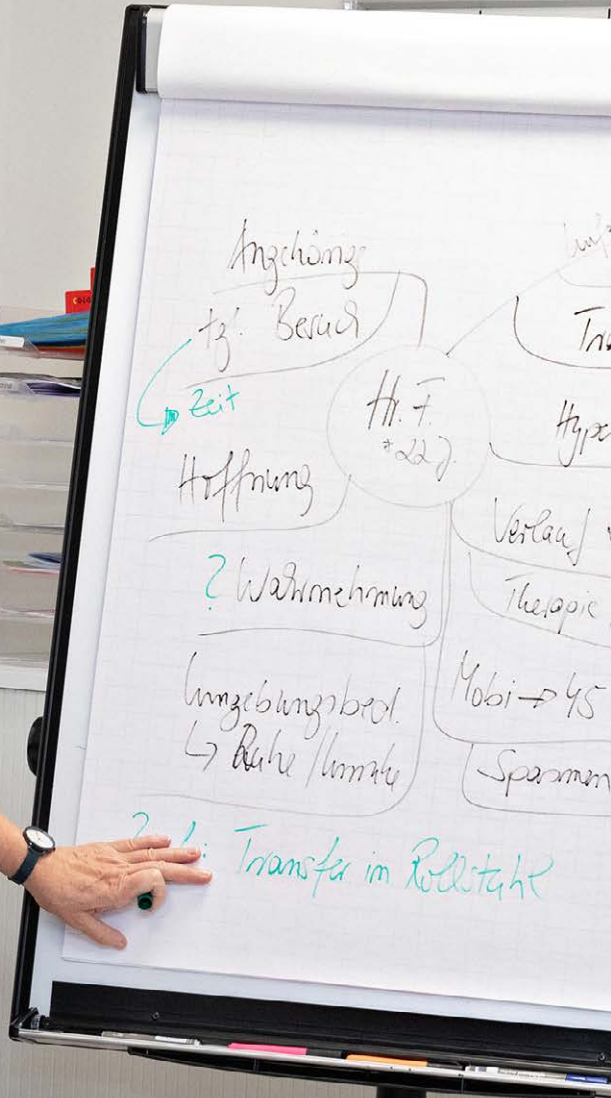 Angehörige
tgl. Besuch
Zeit
Hr. F.
*22J.
Hoffnung
? Wahrnehmung
Umgebungsbed.
↳ Ruhe/Unruhe
Hypo
Verlauf
Therapie
Mobi → 45
Spasmen
Transfer in Rollstuhl